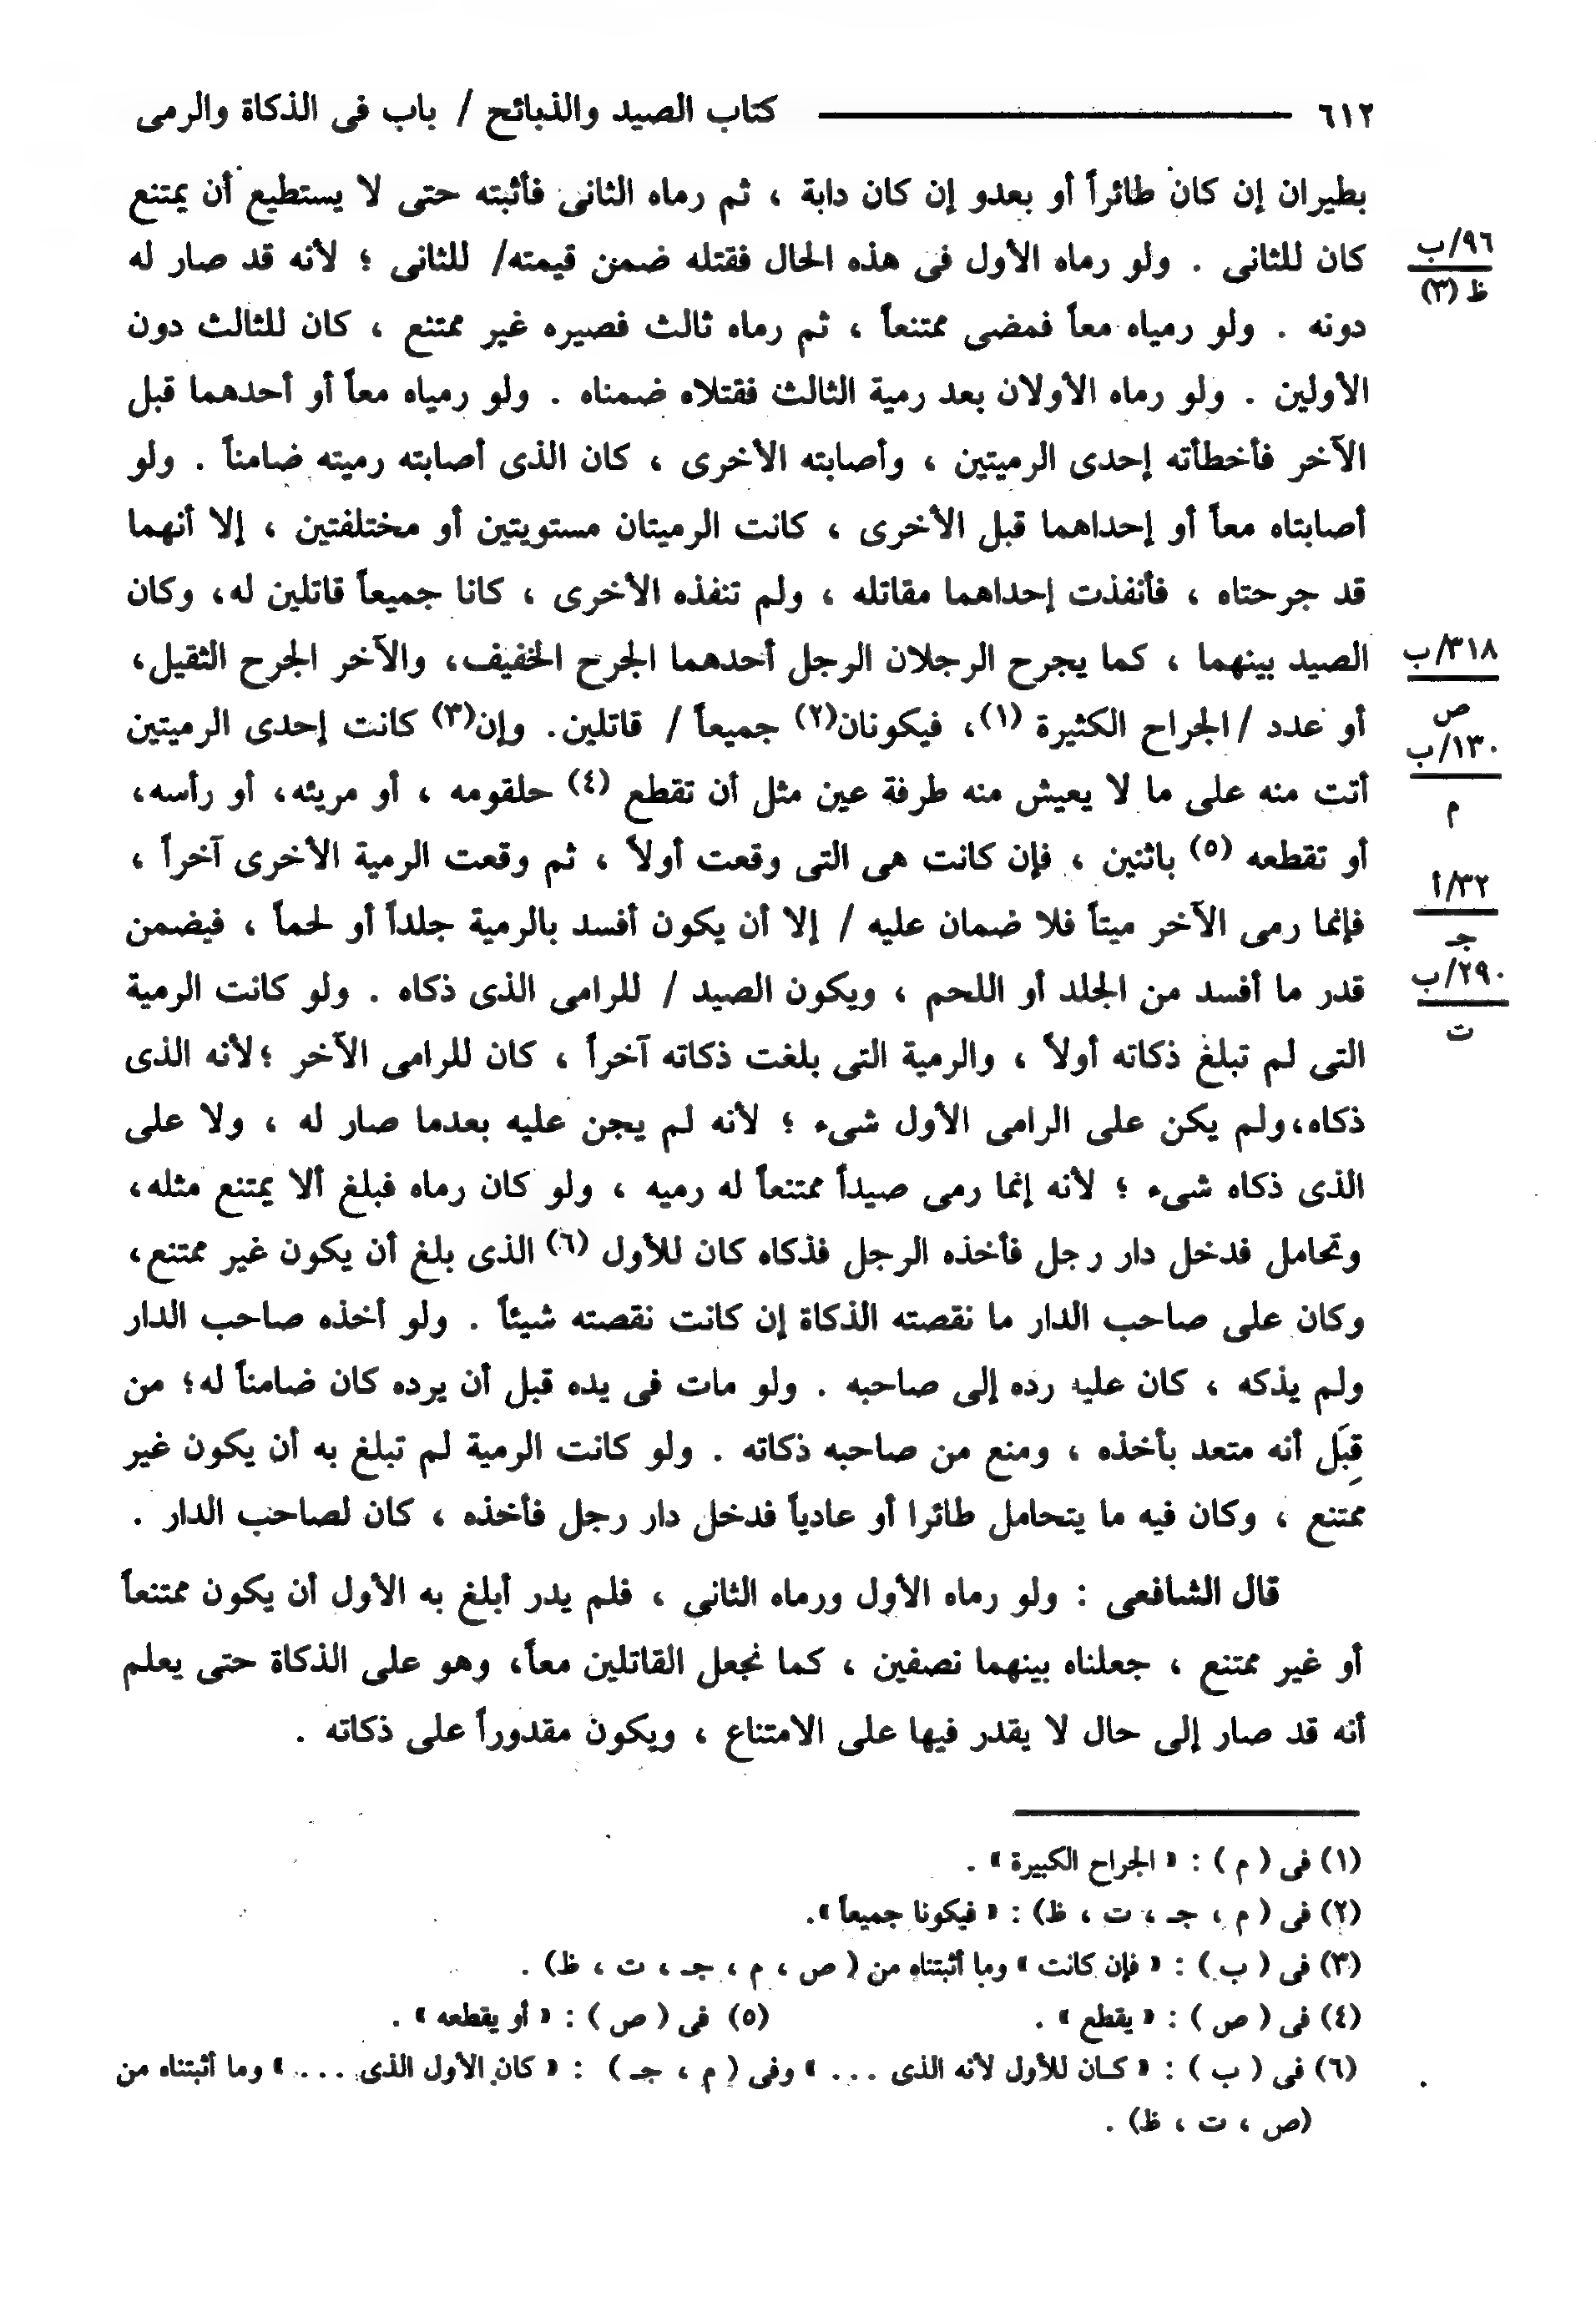 ٦١٢ كتاب الصيد والذبائح / باب فى الذكاة والرمى
بطيران إن كان طائراً أو بعدو إن كان دابة ، ثم رماه الثانى فأثبته حتى لا يستطيع أن يمتنع
كان للثانى . ولو رماه الأول فى هذه الحال فقتله ضمن قيمته/ للثانى ؛ لأنه قد صار له
٩٦/ب
ظ (٣)
دونه . ولو رمياه معاً فمضى ممتنعاً ، ثم رماه ثالث فصيره غير ممتنع ، كان للثالث دون
الأولين . ولو رماه الأولان بعد رمية الثالث فقتلاه ضمناه . ولو رمياه معاً أو أحدهما قبل
الآخر فأخطأته إحدى الرميتين ، وأصابته الأخرى ، كان الذى أصابته رميته ضامناً . ولو
أصابتاه معاً أو إحداهما قبل الأخرى ، كانت الرميتان مستويتين أو مختلفتين ، إلا أنهما
قد جرحتاه ، فأنفذت إحداهما مقاتله ، ولم تنفذه الأخرى ، كانا جميعاً قاتلين له، وكان
الصيد بينهما ، كما يجرح الرجلان الرجل أحدهما الجرح الخفيف، والآخر الجرح الثقيل،
٣١٨/ب
ص
أو عدد /الجراح الكثيرة (١)، فيكونان(٢) جميعاً / قاتلين. وإن(٣) كانت إحدى الرميتين
١٣٠/ب
م
أتت منه على ما لا يعيش منه طرفة عين مثل أن تقطع (٤) حلقومه ، أو مريئه، أو رأسه،
أو تقطعه (٥) باثنين ، فإن كانت هى التى وقعت أولاً ، ثم وقعت الرمية الأخرى آخراً ،
فإنما رمى الآخر ميتاً فلا ضمان عليه / إلا أن يكون أفسد بالرمية جلداً أو لحماً ، فيضمن
٣٢/أ
جـ
قدر ما أفسد من الجلد أو اللحم ، ويكون الصيد / للرامى الذى ذكاه . ولو كانت الرمية
٢٩٠/ب
ت
التى لم تبلغ ذكاته أولاً ، والرمية التى بلغت ذكاته آخراً ، كان للرامى الآخر ؛لأنه الذى
ذكاه،ولم يكن على الرامى الأول شىء ؛ لأنه لم يجن عليه بعدما صار له ، ولا على
الذى ذكاه شىء ؛ لأنه إنما رمى صيداً ممتنعاً له رميه ، ولو كان رماه فبلغ ألا يمتنع مثله،
وتحامل فدخل دار رجل فأخذه الرجل فذكاه كان للأول (٦) الذى بلغ أن يكون غير ممتنع،
وكان على صاحب الدار ما نقصته الذكاة إن كانت نقصته شيئاً . ولو أخذه صاحب الدار
ولم يذكه ، كان عليه رده إلى صاحبه . ولو مات فى يده قبل أن يرده كان ضامناً له؛ من
قِبَلِ أنه متعد بأخذه ، ومنع من صاحبه ذكاته . ولو كانت الرمية لم تبلغ به أن يكون غير
ممتنع ، وكان فيه ما يتحامل طائرا أو عادياً فدخل دار رجل فأخذه ، كان لصاحب الدار .
قال الشافعى : ولو رماه الأول ورماه الثانى ، فلم يدر أبلغ به الأول أن يكون ممتنعاً
أو غير ممتنع ، جعلناه بينهما نصفين ، كما نجعل القاتلين معاً، وهو على الذكاة حتى يعلم
أنه قد صار إلى حال لا يقدر فيها على الامتناع ، ويكون مقدوراً على ذكاته .
(١) فى ( م ) : « الجراح الكبيرة » .
(٢) فى ( م ، جـ ، ت ، ظ) : « فيكونا جميعاً ».
(٣) فى ( ب ) : « فإن كانت » وما أثبتناه من ( ص ، م ، جـ ، ت ، ظ) .
(٤) فى ( ص ) : « يقطع » . (٥) فى ( ص ) : « أو يقطعه » .
(٦) فى ( ب ) : « كـان للأول لأنه الذى ... » وفى ( م ، جـ ) : « كان الأول الذى ... » وما أثبتناه من
(ص ، ت ، ظ) .